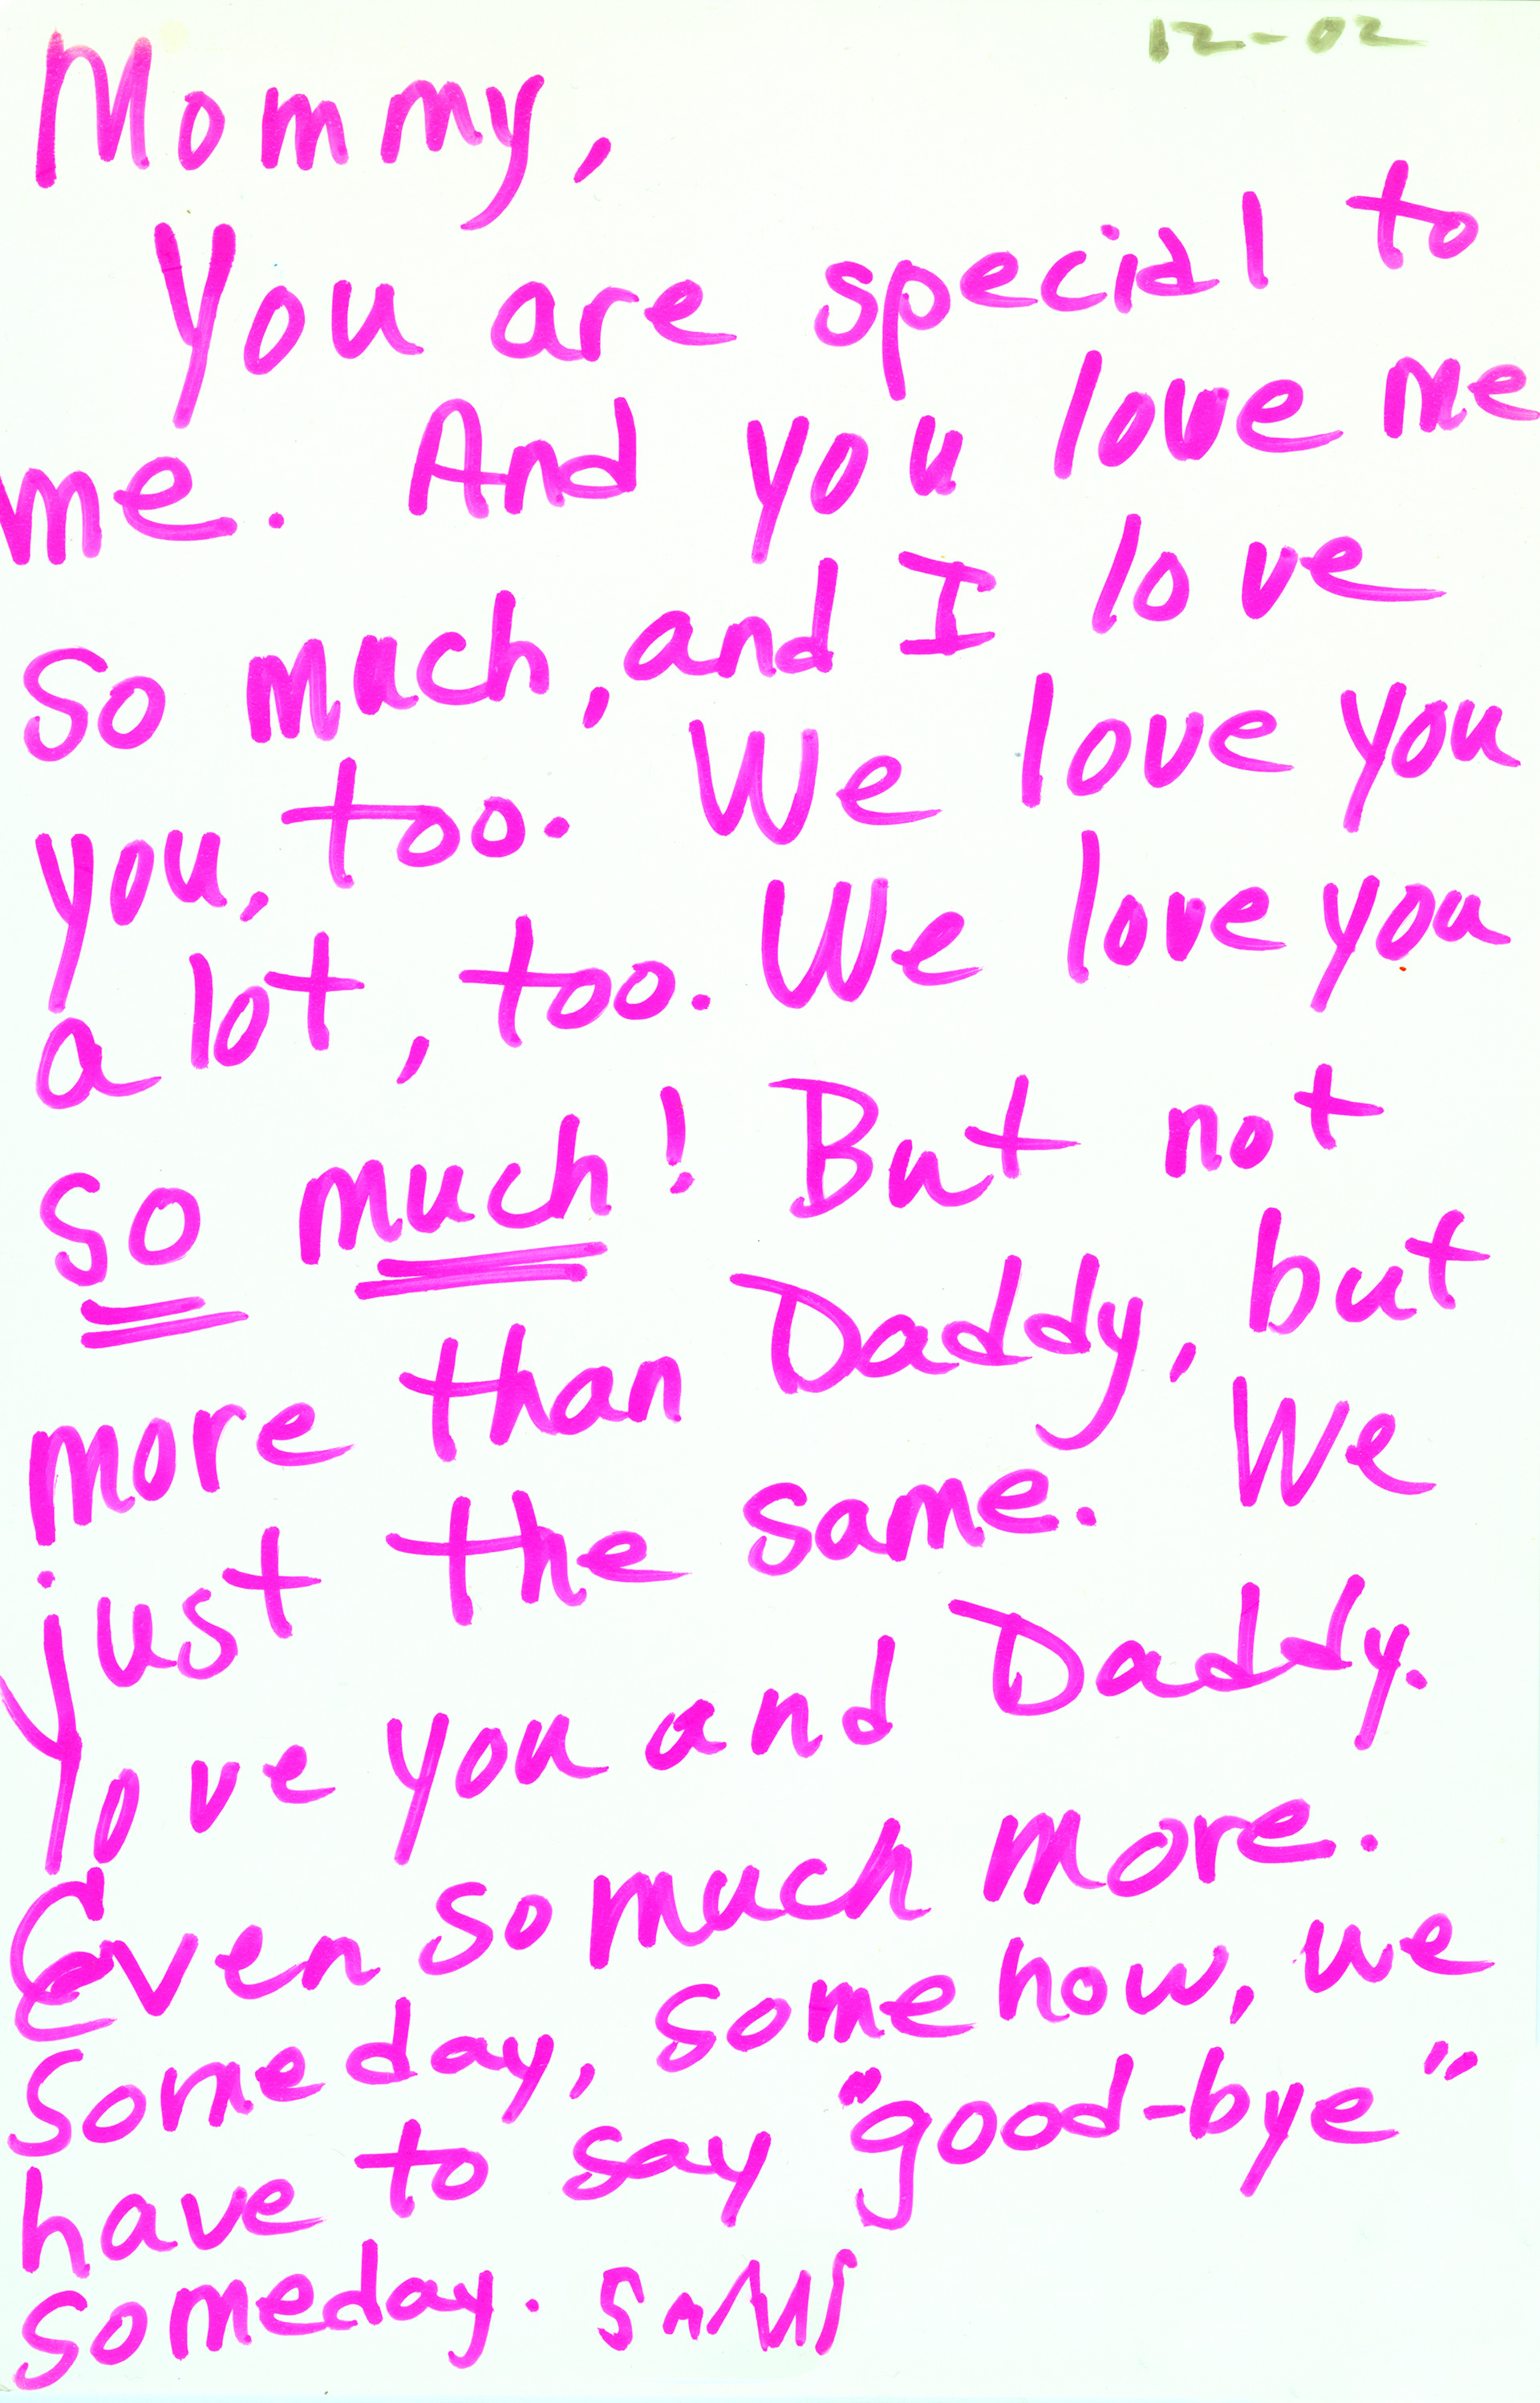 12-02
Mommy,
You are special to
me. And you love me
so much, and I love
you, too. We love you
a lot, too. We love you
so much! But not
more than Daddy, but
just the same. We
love you and Daddy.
Even so much more.
Someday, somehow, we
have to say "good-bye"
someday.